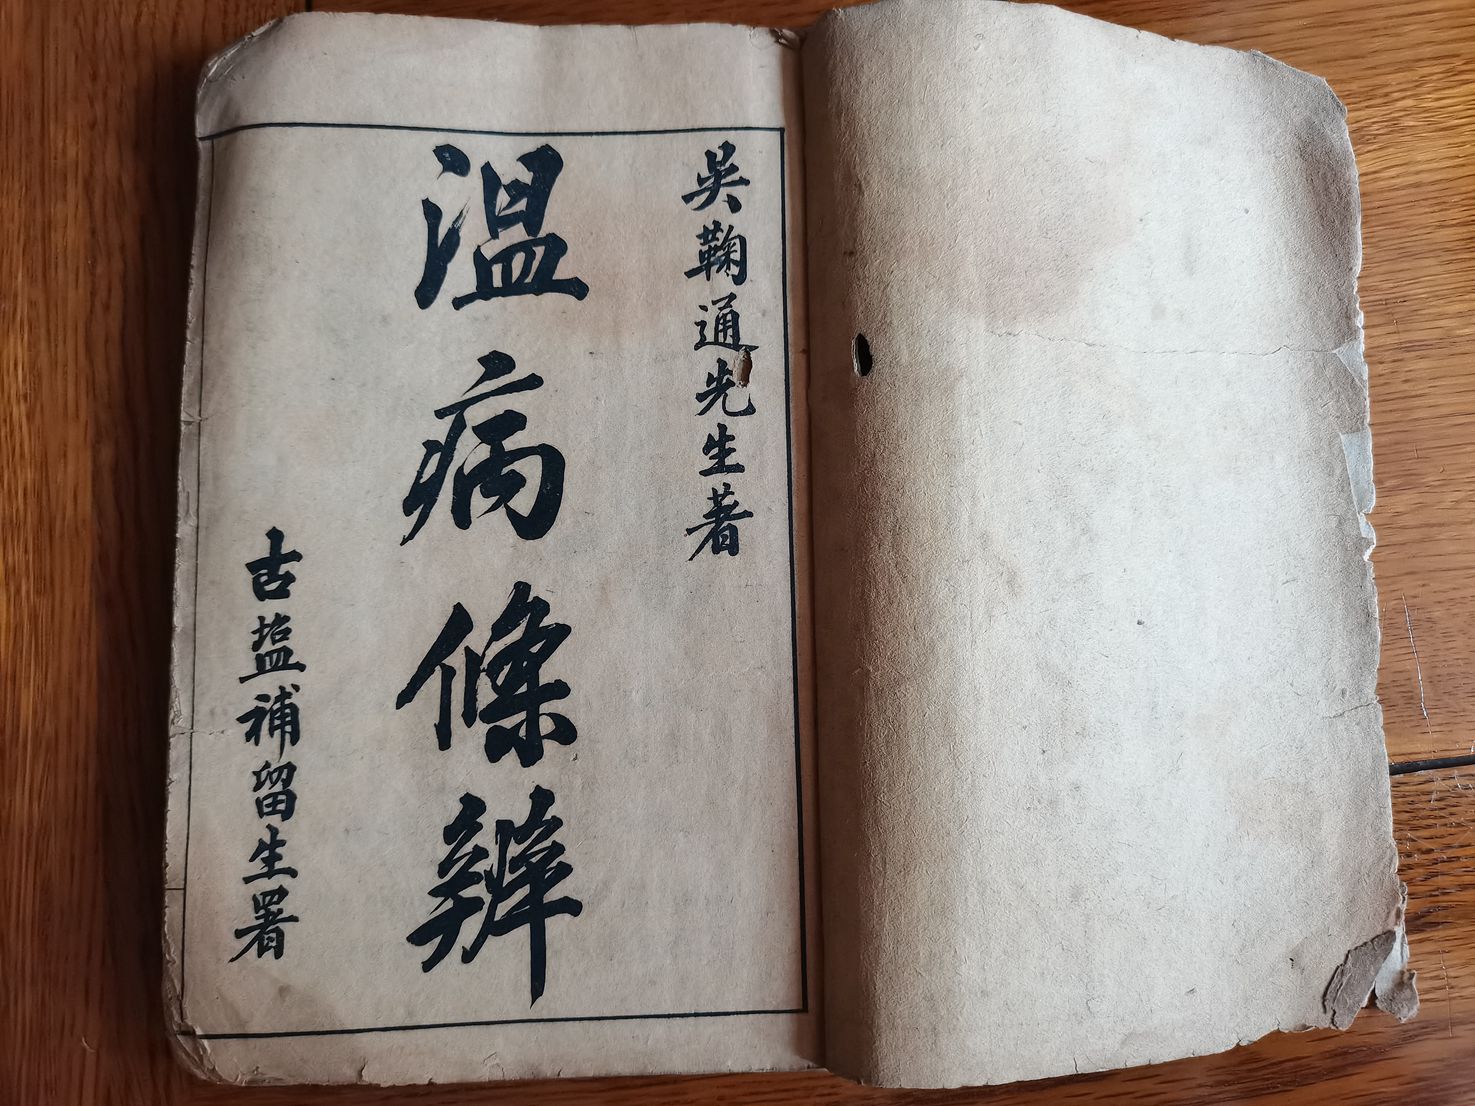 吳鞠通先生著
温病條辨
古盐補留生署